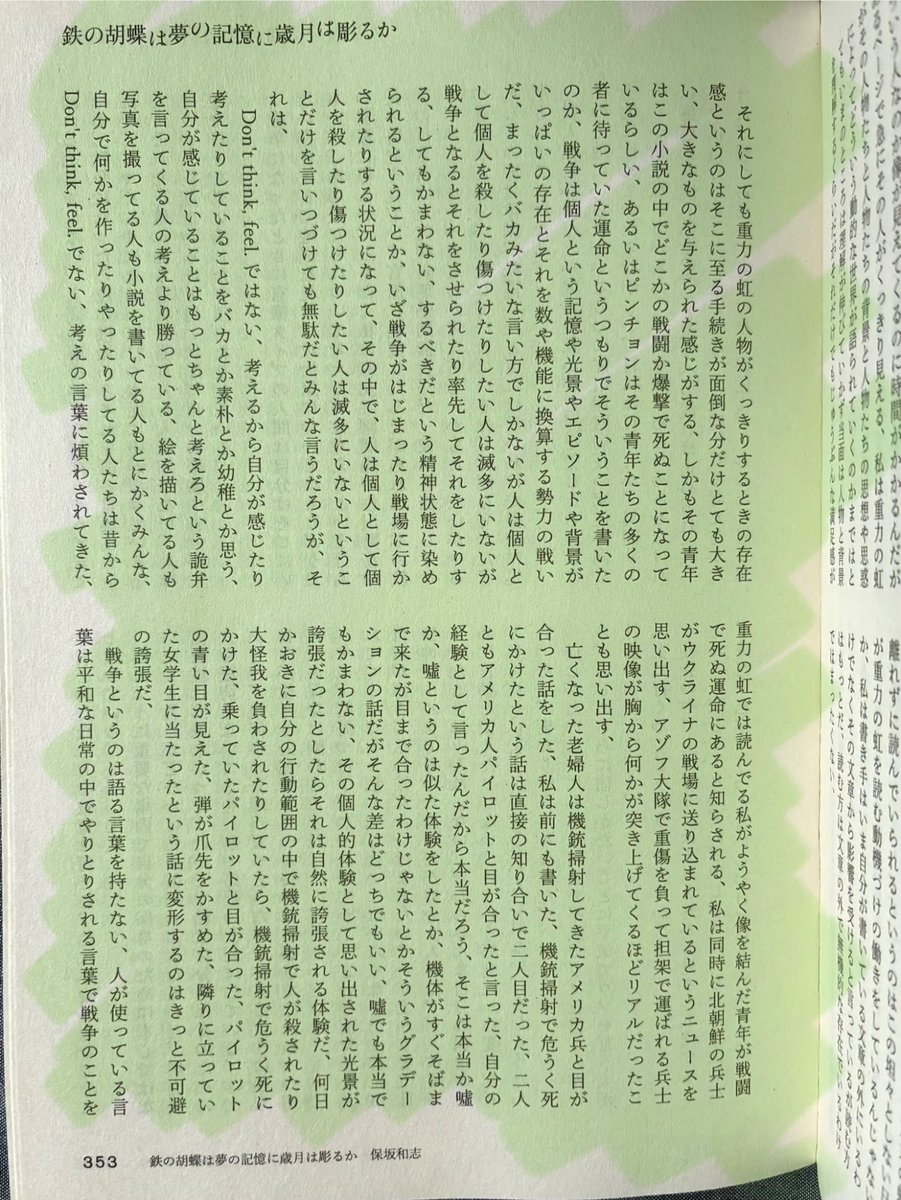 鉄の胡蝶は夢の記憶に歳月は彫るか
それにしても重力の虹の人物がくっきりするときの存在
感というのはそこに至る手続きが面倒な分だけとても大き
い、大きなものを与えられた感じがする、しかもその青年
はこの小説の中でどこかの戦闘か爆撃で死ぬことになって
いるらしい、あるいはピンチョンはその青年たちの多くの
者に待っていた運命というつもりでそういうことを書いた
のか、戦争は個人という記憶や光景やエピソードや背景が
いっぱいの存在とそれを数や機能に換算する勢力の戦い
だ、まったくバカみたいな言い方でしかないが人は個人と
して個人を殺したり傷つけたりしたい人は滅多にいないが
戦争となるとそれをさせられたり率先してそれをしたりす
る、してもかまわない、するべきだという精神状態に染め
られるということか、いざ戦争がはじまったり戦場に行か
されたりする状況になって、その中で、人は個人として個
人を殺したり傷つけたりしたい人は滅多にいないというこ
とだけを言いつづけても無駄だとみんな言うだろうが、そ
れは、
Don't think, feel. ではない、考えるから自分が感じたり
考えたりしていることをバカとか素朴とか幼稚とか思う、
自分が感じていることはもっとちゃんと考えろという詭弁
を言ってくる人の考えより勝っている、絵を描いてる人も
写真を撮ってる人も小説を書いてる人もとにかくみんな、
自分で何かを作ったりやったりしてる人たちは昔から
Don't think, feel. でない、考えの言葉に煩わされてきた、
重力の虹では読んでる私がようやく像を結んだ青年が戦闘
で死ぬ運命にあると知らされる、私は同時に北朝鮮の兵士
がウクライナの戦場に送り込まれているというニュースを
思い出す、アゾフ大隊で重傷を負って担架で運ばれる兵士
の映像が胸から何かが突き上げてくるほどリアルだったこ
とも思い出す、
亡くなった老婦人は機銃掃射してきたアメリカ兵と目が
合った話をした、私は前にも書いた、機銃掃射で危うく死
にかけたという話は直接の知り合いで二人目だった、二人
ともアメリカ人パイロットと目が合ったと言った、自分の
経験として言ったんだから本当だろう、そこは本当か嘘
か、嘘というのは似た体験をしたとか、機体がすぐそばま
で来たが目まで合ったわけじゃないとかそういうグラデー
ションの話だがそんな差はどっちでもいい、嘘でも本当で
もかまわない、その個人的体験として思い出された光景が
誇張だったとしたらそれは自然に誇張される体験だ、何日
かおきに自分の行動範囲の中で機銃掃射で人が殺されたり
大怪我を負わされたりしていたら、機銃掃射で危うく死に
かけた、乗っていたパイロットと目が合った、パイロット
の青い目が見えた、弾が爪先をかすめた、隣りに立ってい
た女学生に当たったという話に変形するのはきっと不可避
の誇張だ、
戦争というのは語る言葉を持たない、人が使っている言
葉は平和な日常の中でやりとりされる言葉で戦争のことを
353 鉄の胡蝶は夢の記憶に歳月は彫るか 保坂和志